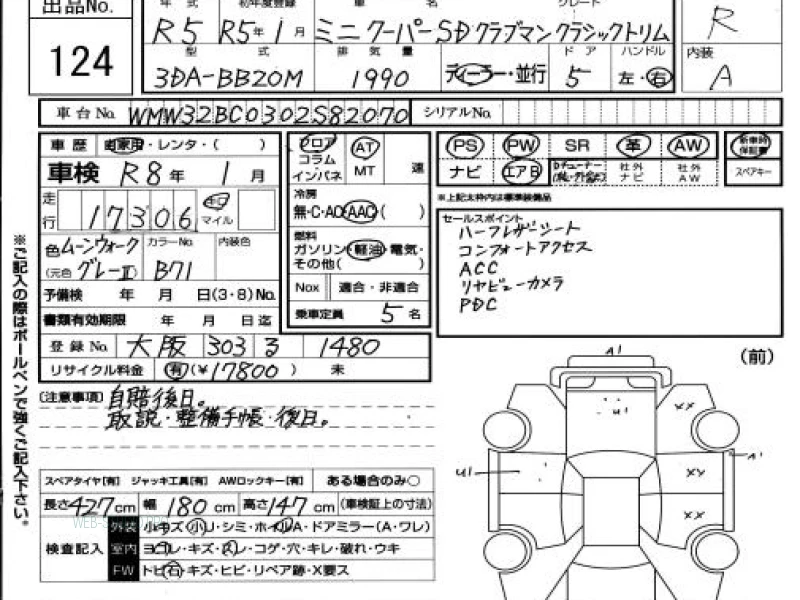 出品No.
124
年式
初年度登録
車名
グレード
R5
R5年1月
ミニクーパーSDクラブマンクラシックトリム
R
型式
排気量
ドア
ハンドル
内装
3DA-BB20M
1990
ディーラー・並行
5
左・右
A
車台No.
WMW32BC0302S82070
シリアルNo.
車歴
自家用・レンタ・( )
フロア
コラム
インパネ
AT
MT
速
PS
PW
SR
革
AW
新車時保証書
ナビ
エアB
社外ナビ
社外AW
スペアキー
車検
R8年1月
走行
17306
キロ
マイル
冷房
無・C・AC・AAC・( )
※上記太枠内は標準装備品
色
ムーンウォーク
カラーNo.
内装色
(元色)
グレーII
B71
燃料
ガソリン・軽油・電気・
その他( )
セールスポイント
ハーフレザーシート
コンフォートアクセス
ACC
リヤビューカメラ
PDC
予備検 年 月 日(3・8)No.
Nox 適合・非適合
書類有効期限 年 月 日迄
乗車定員 5名
登録No.
大阪 303 る 1480
リサイクル料金
有(¥17800) 未
(注意事項)
自賠後日。
取説・整備手帳・後日。
スペアタイヤ[有] ジャッキ工具[有] AWロックキー[有] ある場合のみ○
長さ427cm 幅180cm 高さ147cm (車検証上の寸法)
検査記入
外装
小キズ・小凹・シミ・ホイルA・ドアミラー(A・ワレ)
室内
ヨゴレ・キズ・スレ・コゲ・穴・キレ・破れ・ウキ
FW
トビ石・キズ・ヒビ・リペア跡・X要ス
※ご記入の際はボールペンで強くご記入下さい。
(前)
A1
U1
XX
A1
U1
XY
XX